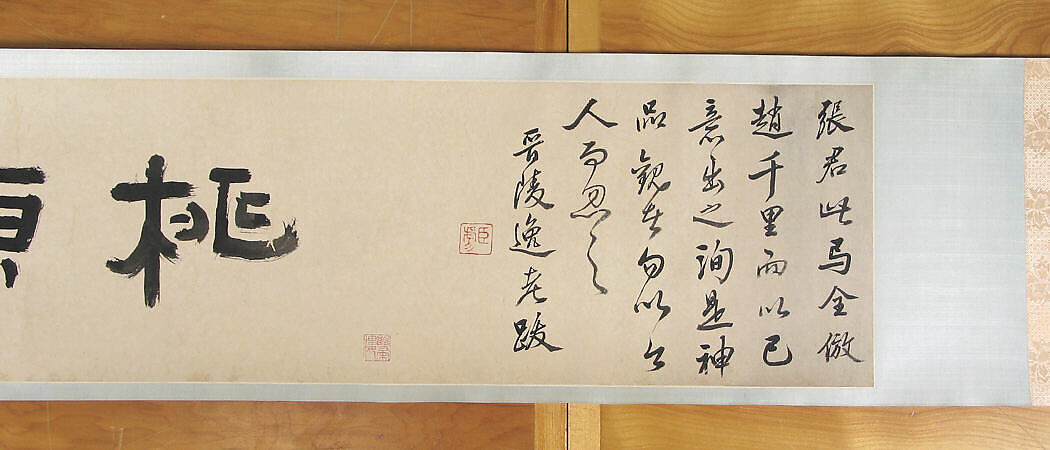 張君此馬全倣
趙千里而以己
意出之詢是神
品觀者勿以今
人而忽之
晉陵逸老跋
桃